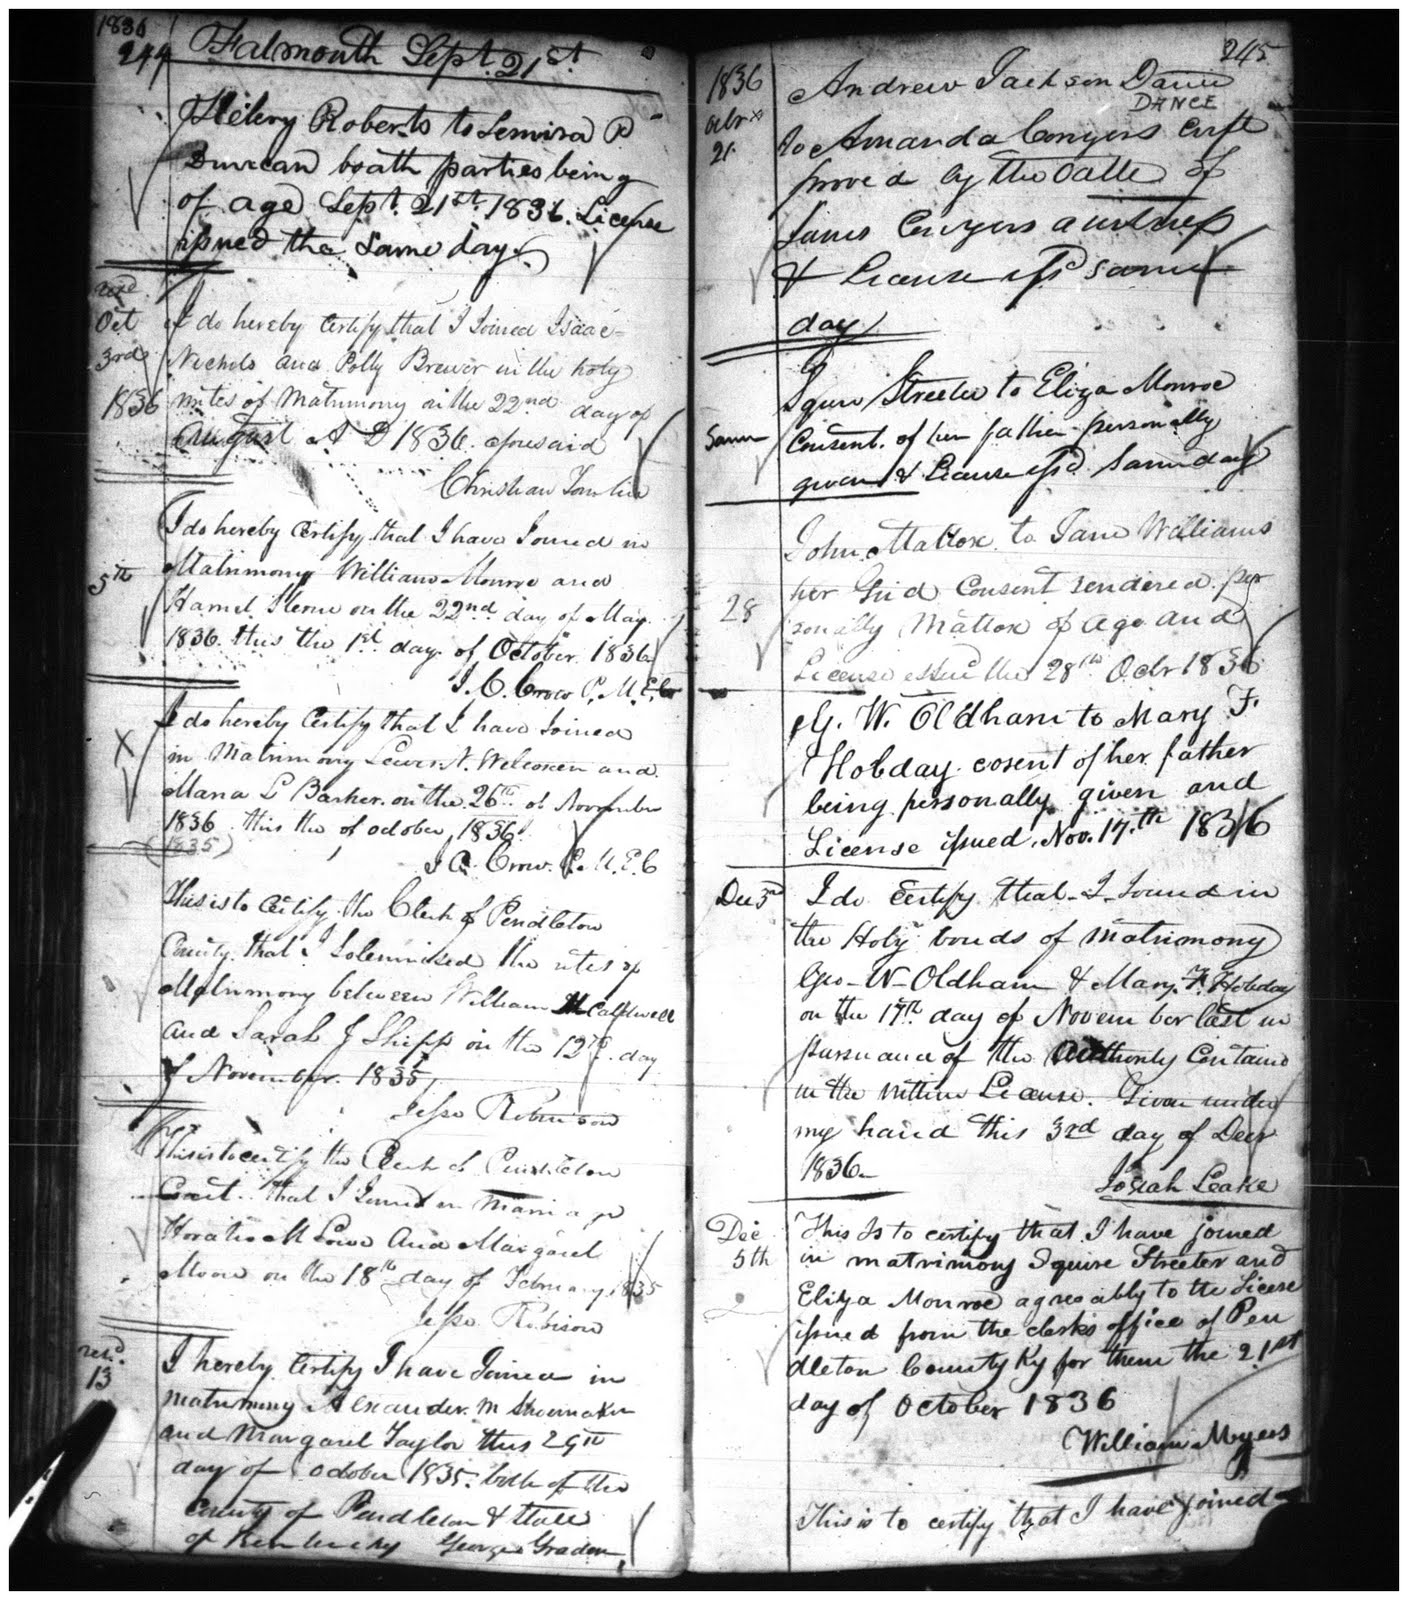 1836
244 Falmouth Sept. 21st
Henry Roberts to Lemira P
Duncan boath parties being
of age Sept. 21st 1836. License
issued the same day.
Oct
3rd
1836
I do hereby certify that I Joined Isaac
Nichols and Polly Brewer in the holy
rites of Matrimony on the 22nd day of
August A D 1836 aforesaid
Christian Tomlin
5th
I do hereby certify that I have Joined in
Matrimony William Monroe and
on the 22nd day of May
1836 this the 1st day of October 1836
J. C. Crow P. M. E. C
X
I do hereby Certify that I have Joined
in Matrimony Lewis A. and
Maria L Barker on the 26th of November
1836 this the of october, 1836
(1835)
J C. Crow. P. M. E. C
This is to certify the Clerk of Pendleton
County that I Solemnised the rites of
Matrimony between William M Caldwell
and Sarah J Shipp on the 12th day
of November 1835,
Jesse Robinson
This is to certify the Clerk of Pendleton
Court that I Joined in Marriage
Horatio M Lowe And Margaret
Moore on the 18th day of February 1835
Jesse Robison
retd.
13
I hereby Certify I have Joined in
matrimony Alexander M Shoemaker
and Margaret Taylor this 29th
day of october 1835 both of the
County of Pendleton & State
of Kentucky George Graden
245
1836
octbr
21
Andrew Jackson Dance
DANCE
to Amanda Conyers
proved by the Oathe of
James Conyers a witness
& License issd same
day
Same
Squire Streeter to Eliza Monroe
Consent of her father personally
given & License issd Same day
28
John Mattox to Jane Williams
her Consent rendered per
sonally Mattox of age and
License issued the 28th Octr 1836
G. W. Oldham to Mary F.
Hobday cosent of her father
being personally given and
License issued Nov. 17.th 1836
Dec 3rd
I do certify that I Joined in
the Holy bonds of matrimony
Geo- W- Oldham & Mary F. Hobday
on the 17th day of November last in
pursuance of the Authority Contained
in the within License. Given under
my hand this 3rd day of Decr
1836-
Josiah Leake
Dec
5th
This Is to certify that I have joined
in matrimony Squire Streeter and
Eliza Monroe agreeably to the License
issued from the clerks office of Pen
dleton County Ky for them the 21st
day of October 1836
William Myers
This is to certify that I have joined